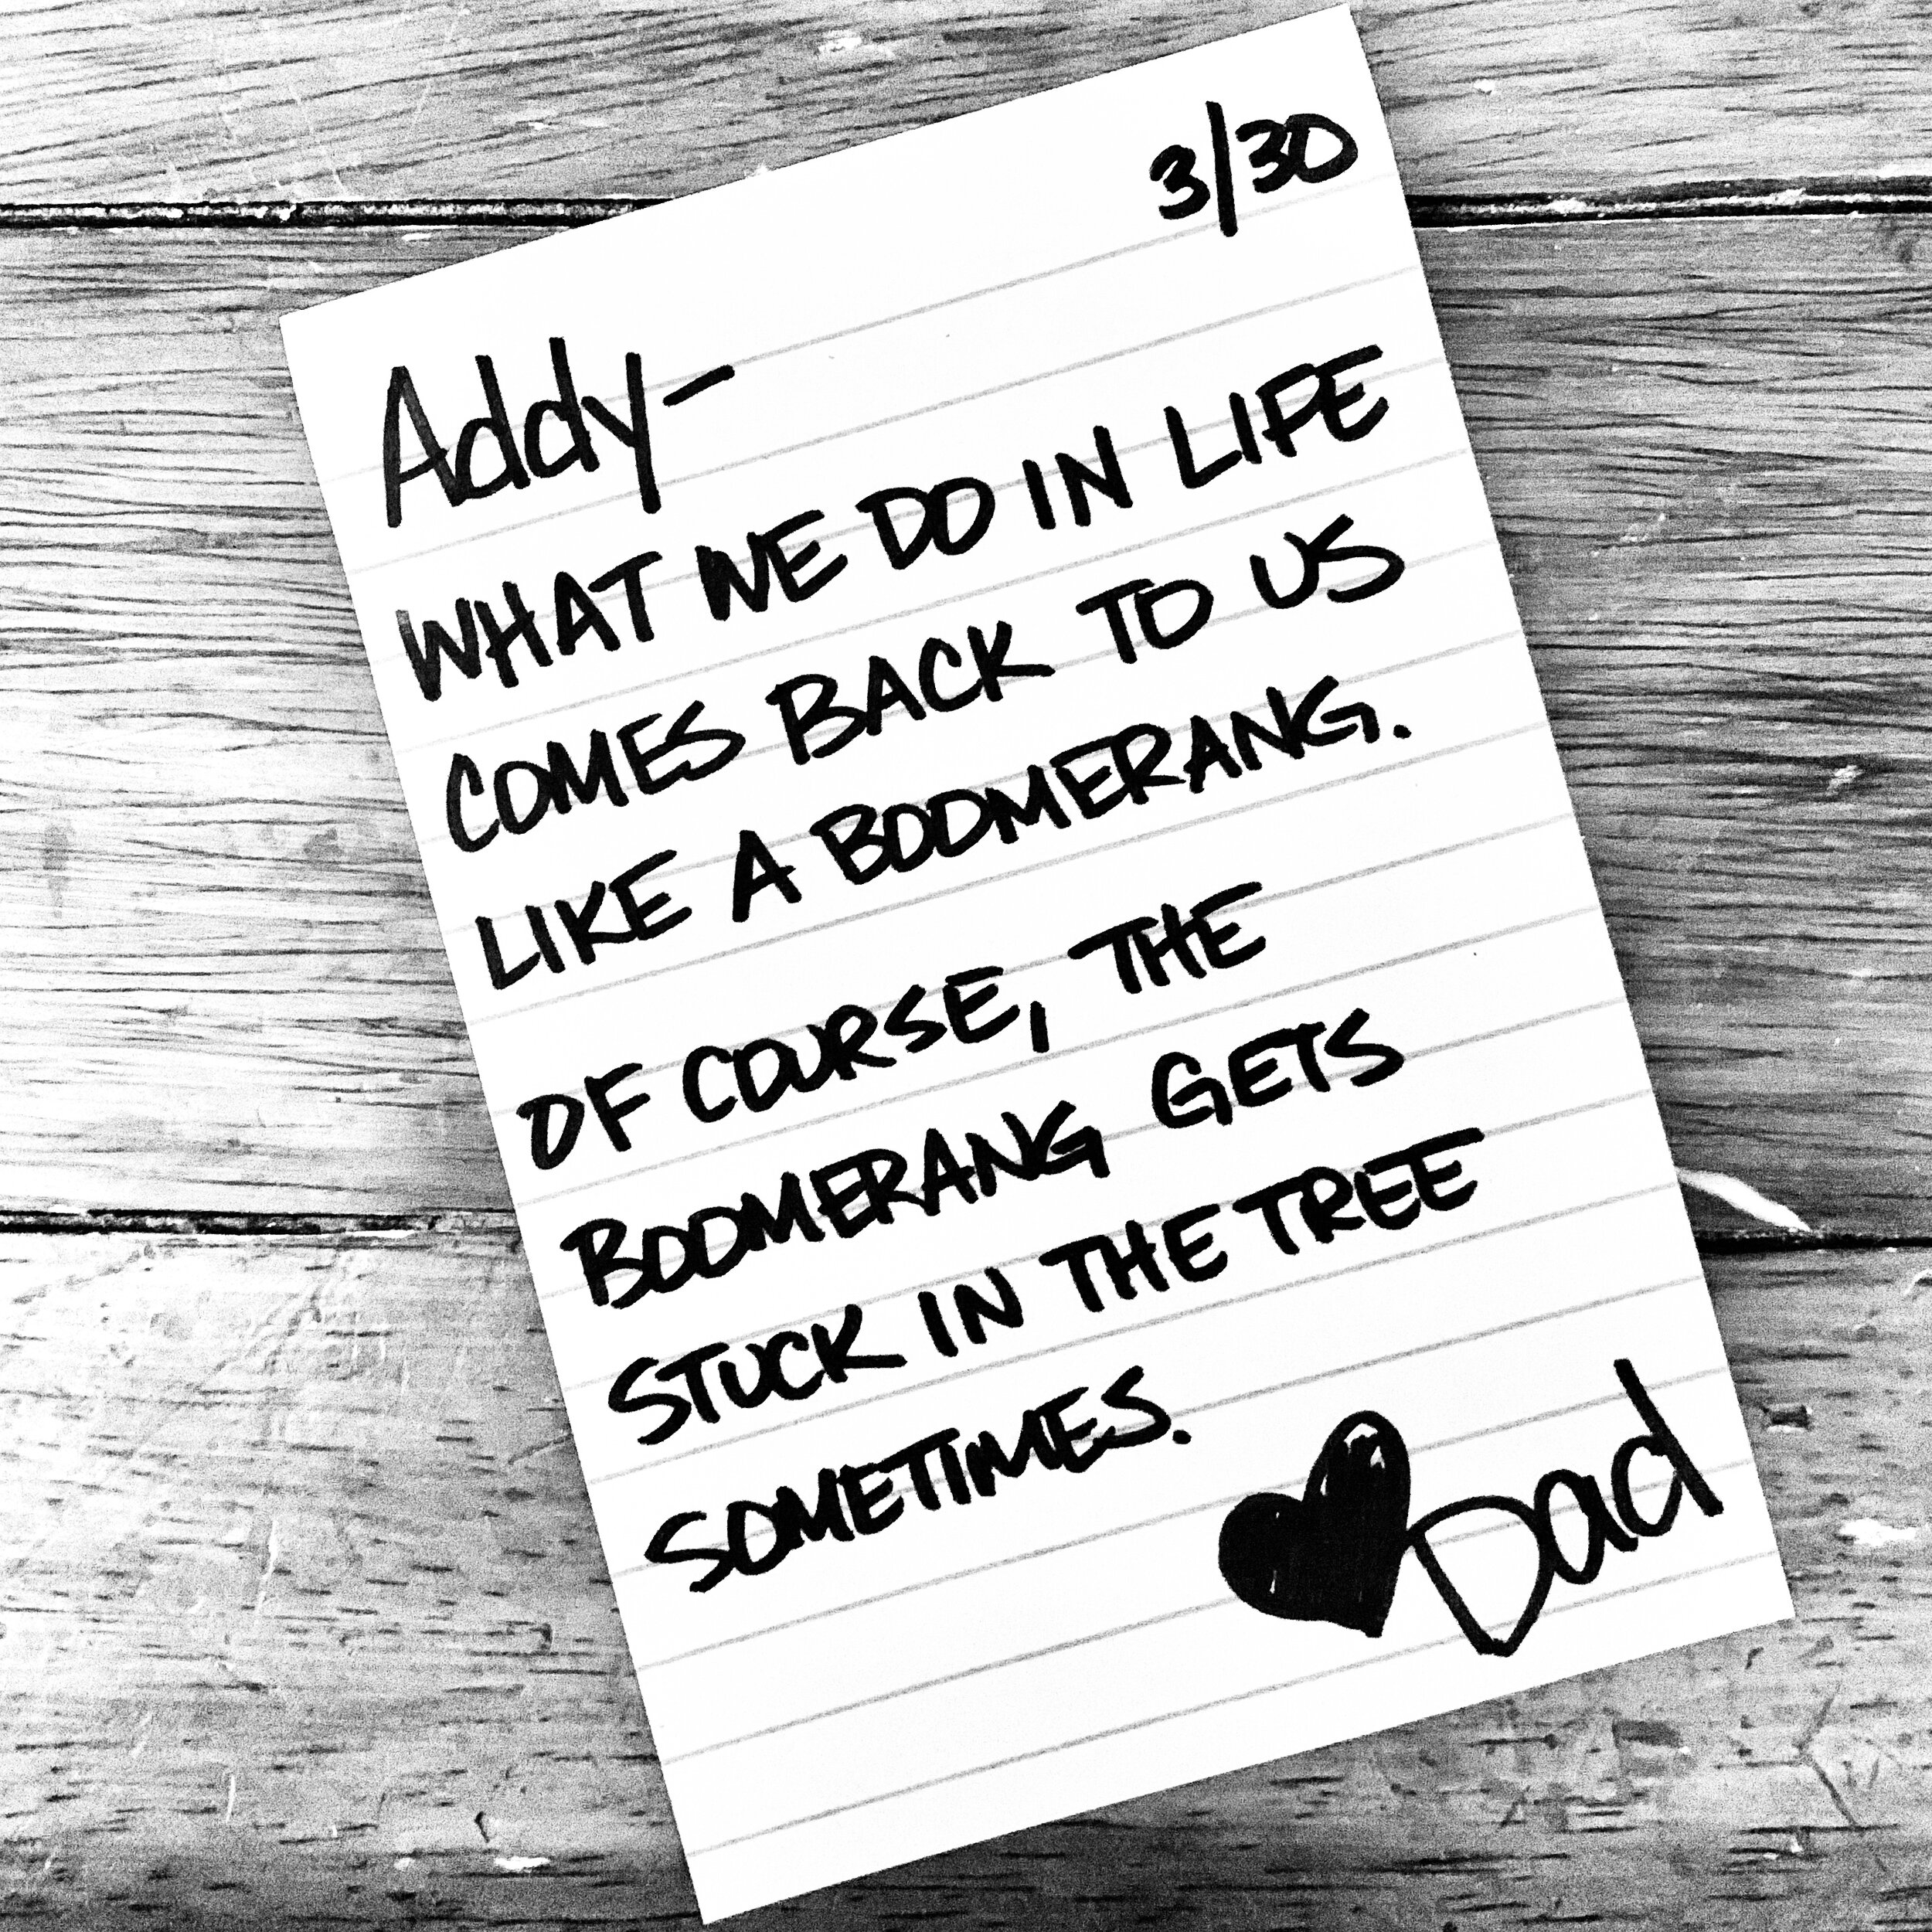 3/30
Addy-
WHAT WE DO IN LIFE
COMES BACK TO US
LIKE A BOOMERANG.
OF COURSE, THE
BOOMERANG GETS
STUCK IN THE TREE
SOMETIMES.
Dad